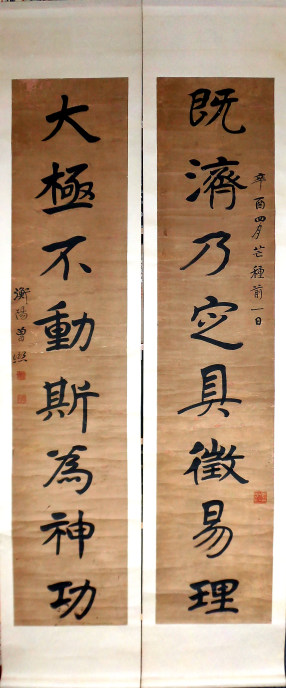 既濟乃定具徵易理
辛酉四月芒種前一日
大極不動斯為神功
衡陽曾熙